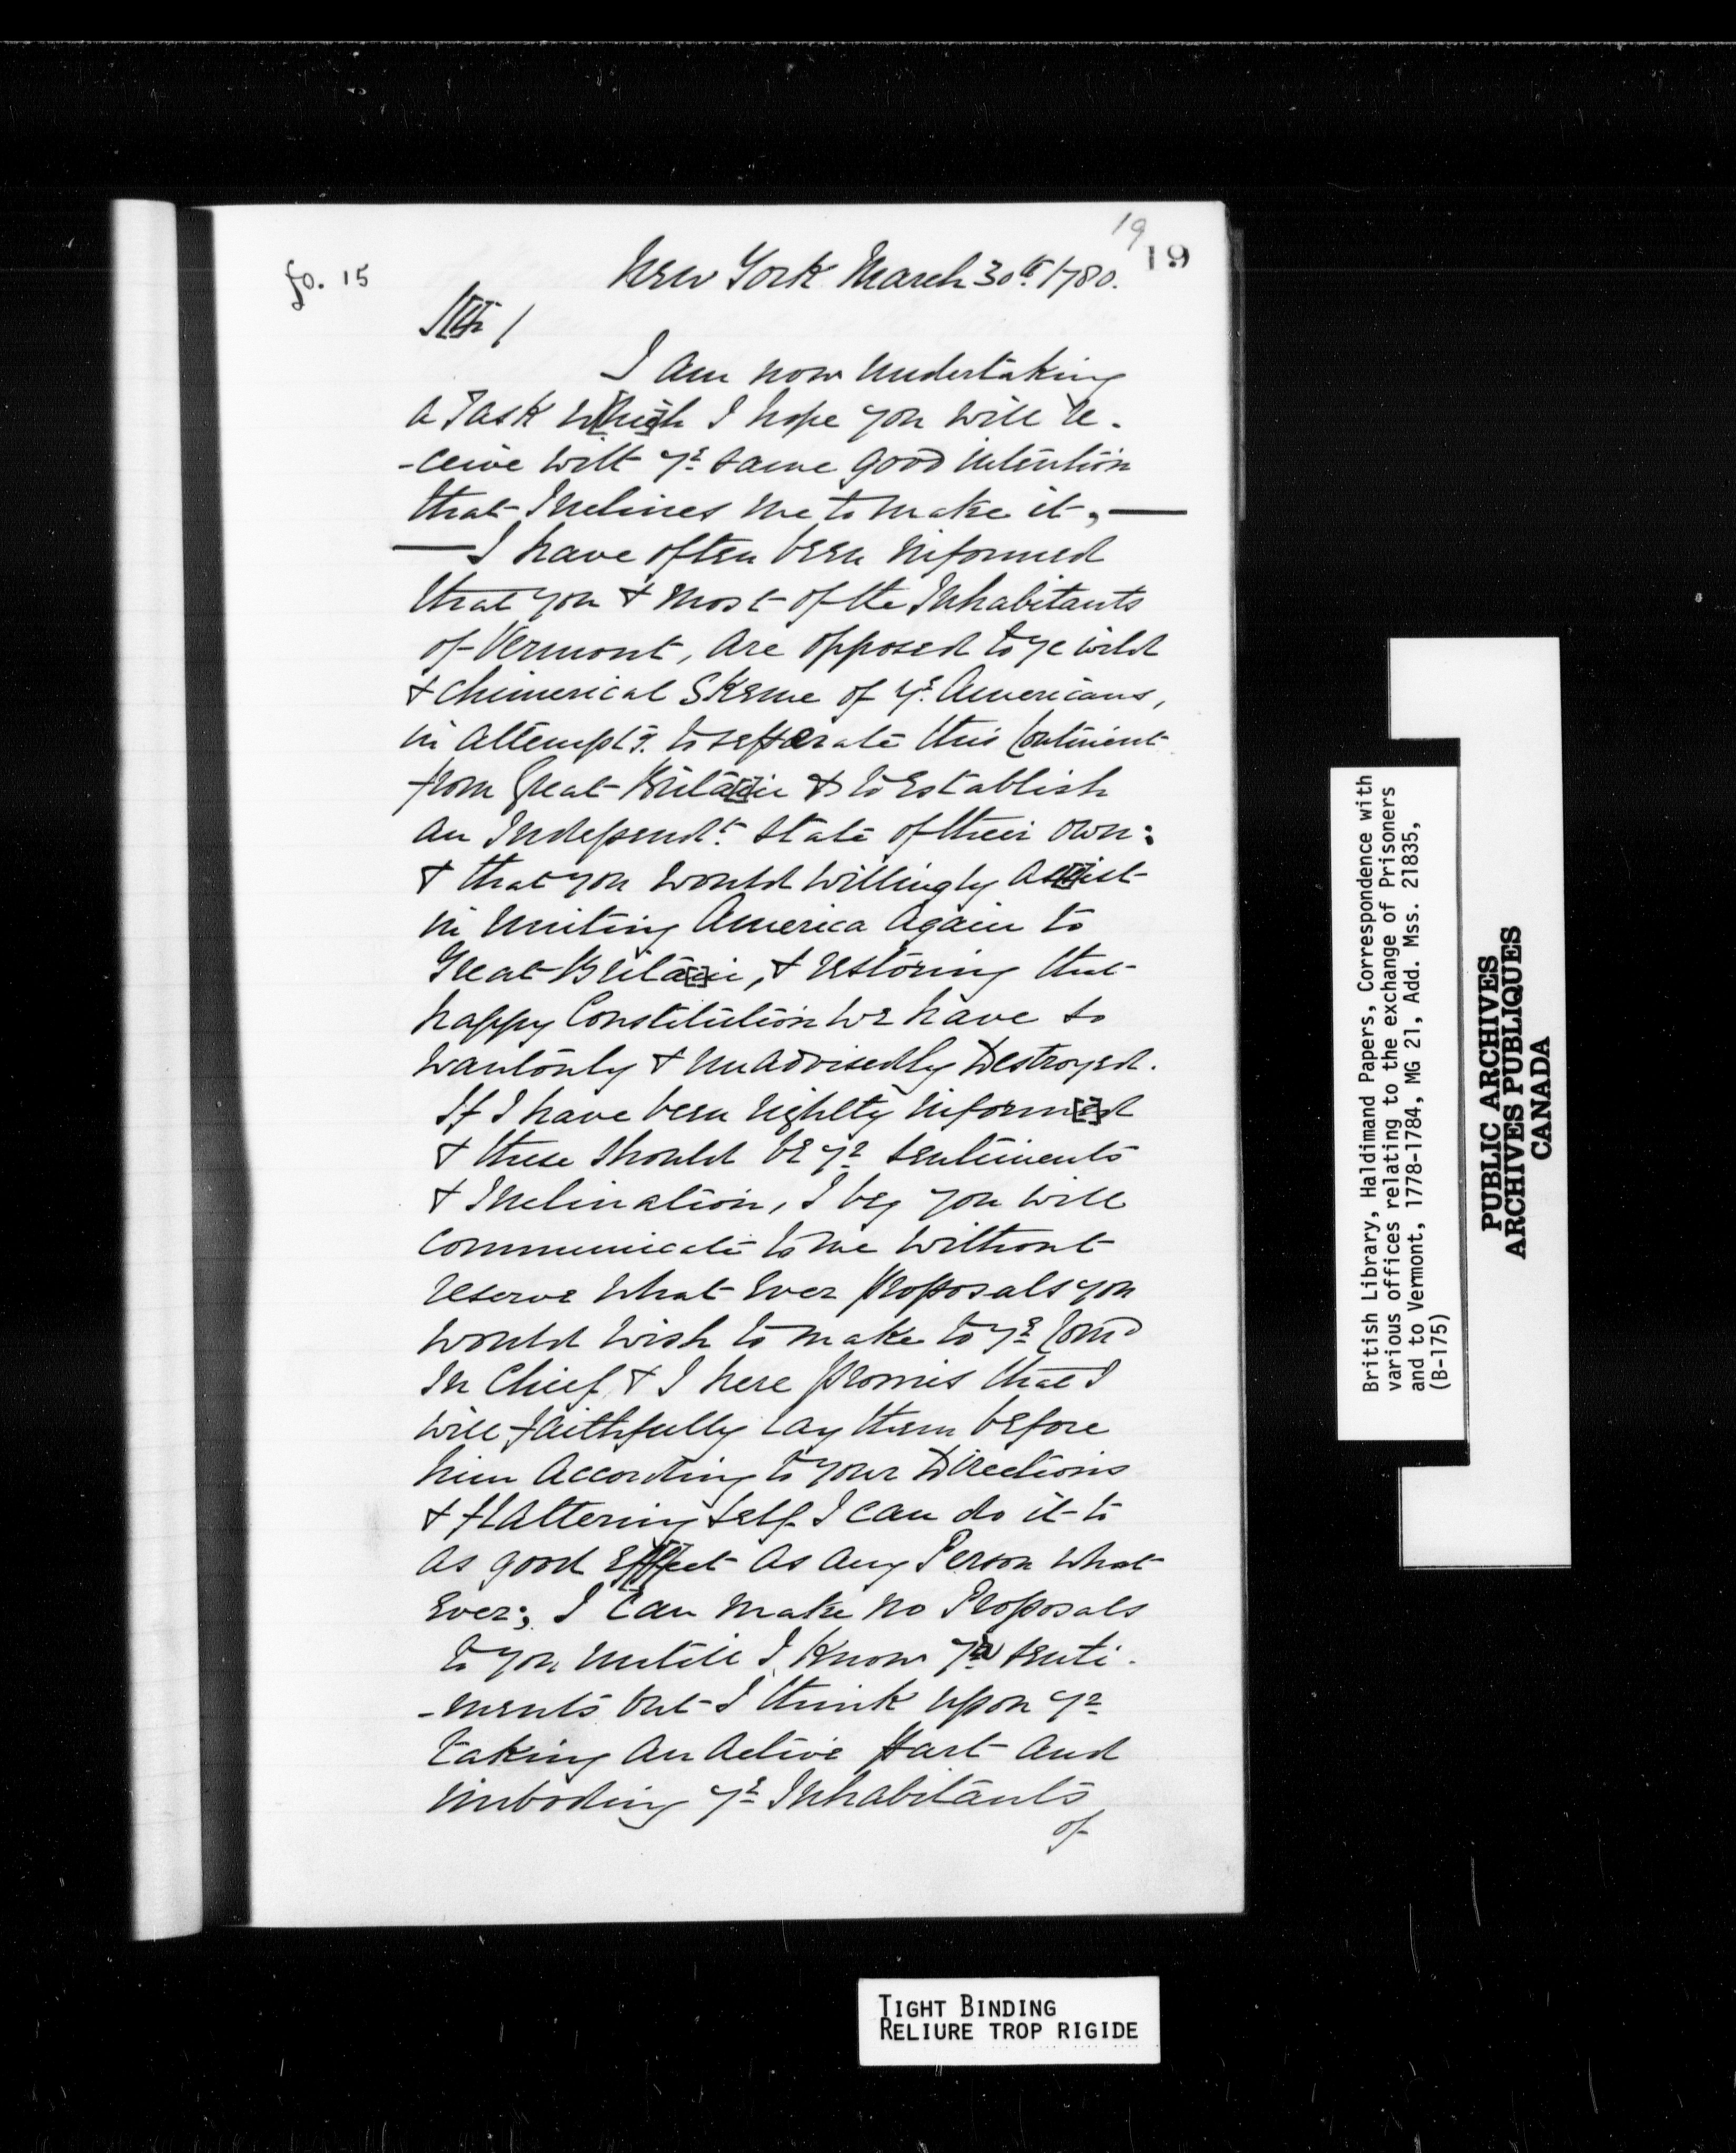 19
19
fo. 15
New York March 30th 1780.
Sir /
I am now undertaking
a Task which I hope you will re-
-ceive with ye same good intention
that Inclines me to make it, —
— I have often been informed
that you & most of the Inhabitants
of Vermont, are opposed to ye wild
& chimerical Skeme of ye Americans,
in attemptg. to sepperate this Continent
from Great Britain & to Establish
an Independt. State of their own:
& that you would willingly Assist
in uniting America Again to
Great Britain, & restoring that
happy Constitution we have so
wantonly & unadvisedly Destroyed.
If I have been rightly informed
& these should be yr sentiments
& Inclination, I beg you will
communicate to me without
reserve what ever proposals you
would wish to make to ye Comd
In Chief & I here promis that I
will faithfully lay them before
him According to your Directions
& flattering self I can do it to
as good Effect as any Person what
ever; I can make no Proposals
to you untill I know yr senti-
-ments but I think upon yr
taking an Active part and
imboding ye Inhabitants
of
British Library, Haldimand Papers, Correspondence with
various offices relating to the exchange of Prisoners
and to Vermont, 1778-1784, MG 21, Add. Mss. 21835,
(B-175)
PUBLIC ARCHIVES
ARCHIVES PUBLIQUES
CANADA
TIGHT BINDING
RELIURE TROP RIGIDE